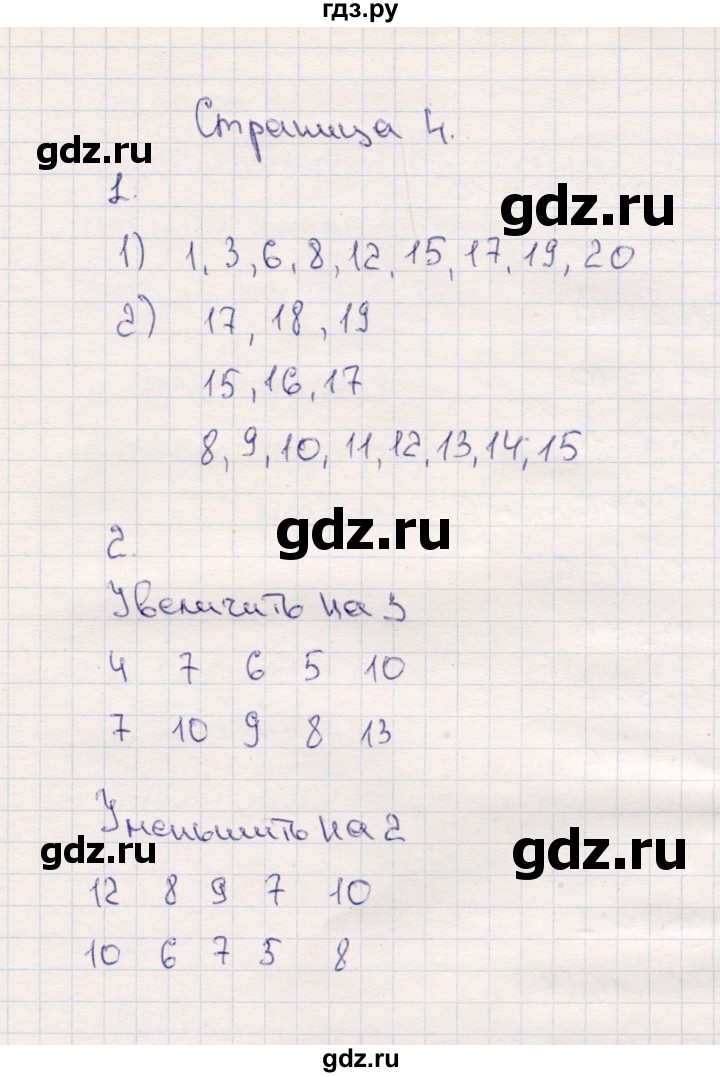 гдз.ру
Страница 4.
gdz.ru
1.
gdz.ru
1) 1, 3, 6, 8, 12, 15, 17, 19, 20
2) 17, 18, 19
15, 16, 17
8, 9, 10, 11, 12, 13, 14, 15
gdz.ru
2.
Увеличить на 3
4 7 6 5 10
7 10 9 8 13
Уменьшить на 2
gdz.ru
gdz.ru
12 8 9 7 10
10 6 7 5 8
gdz.ru